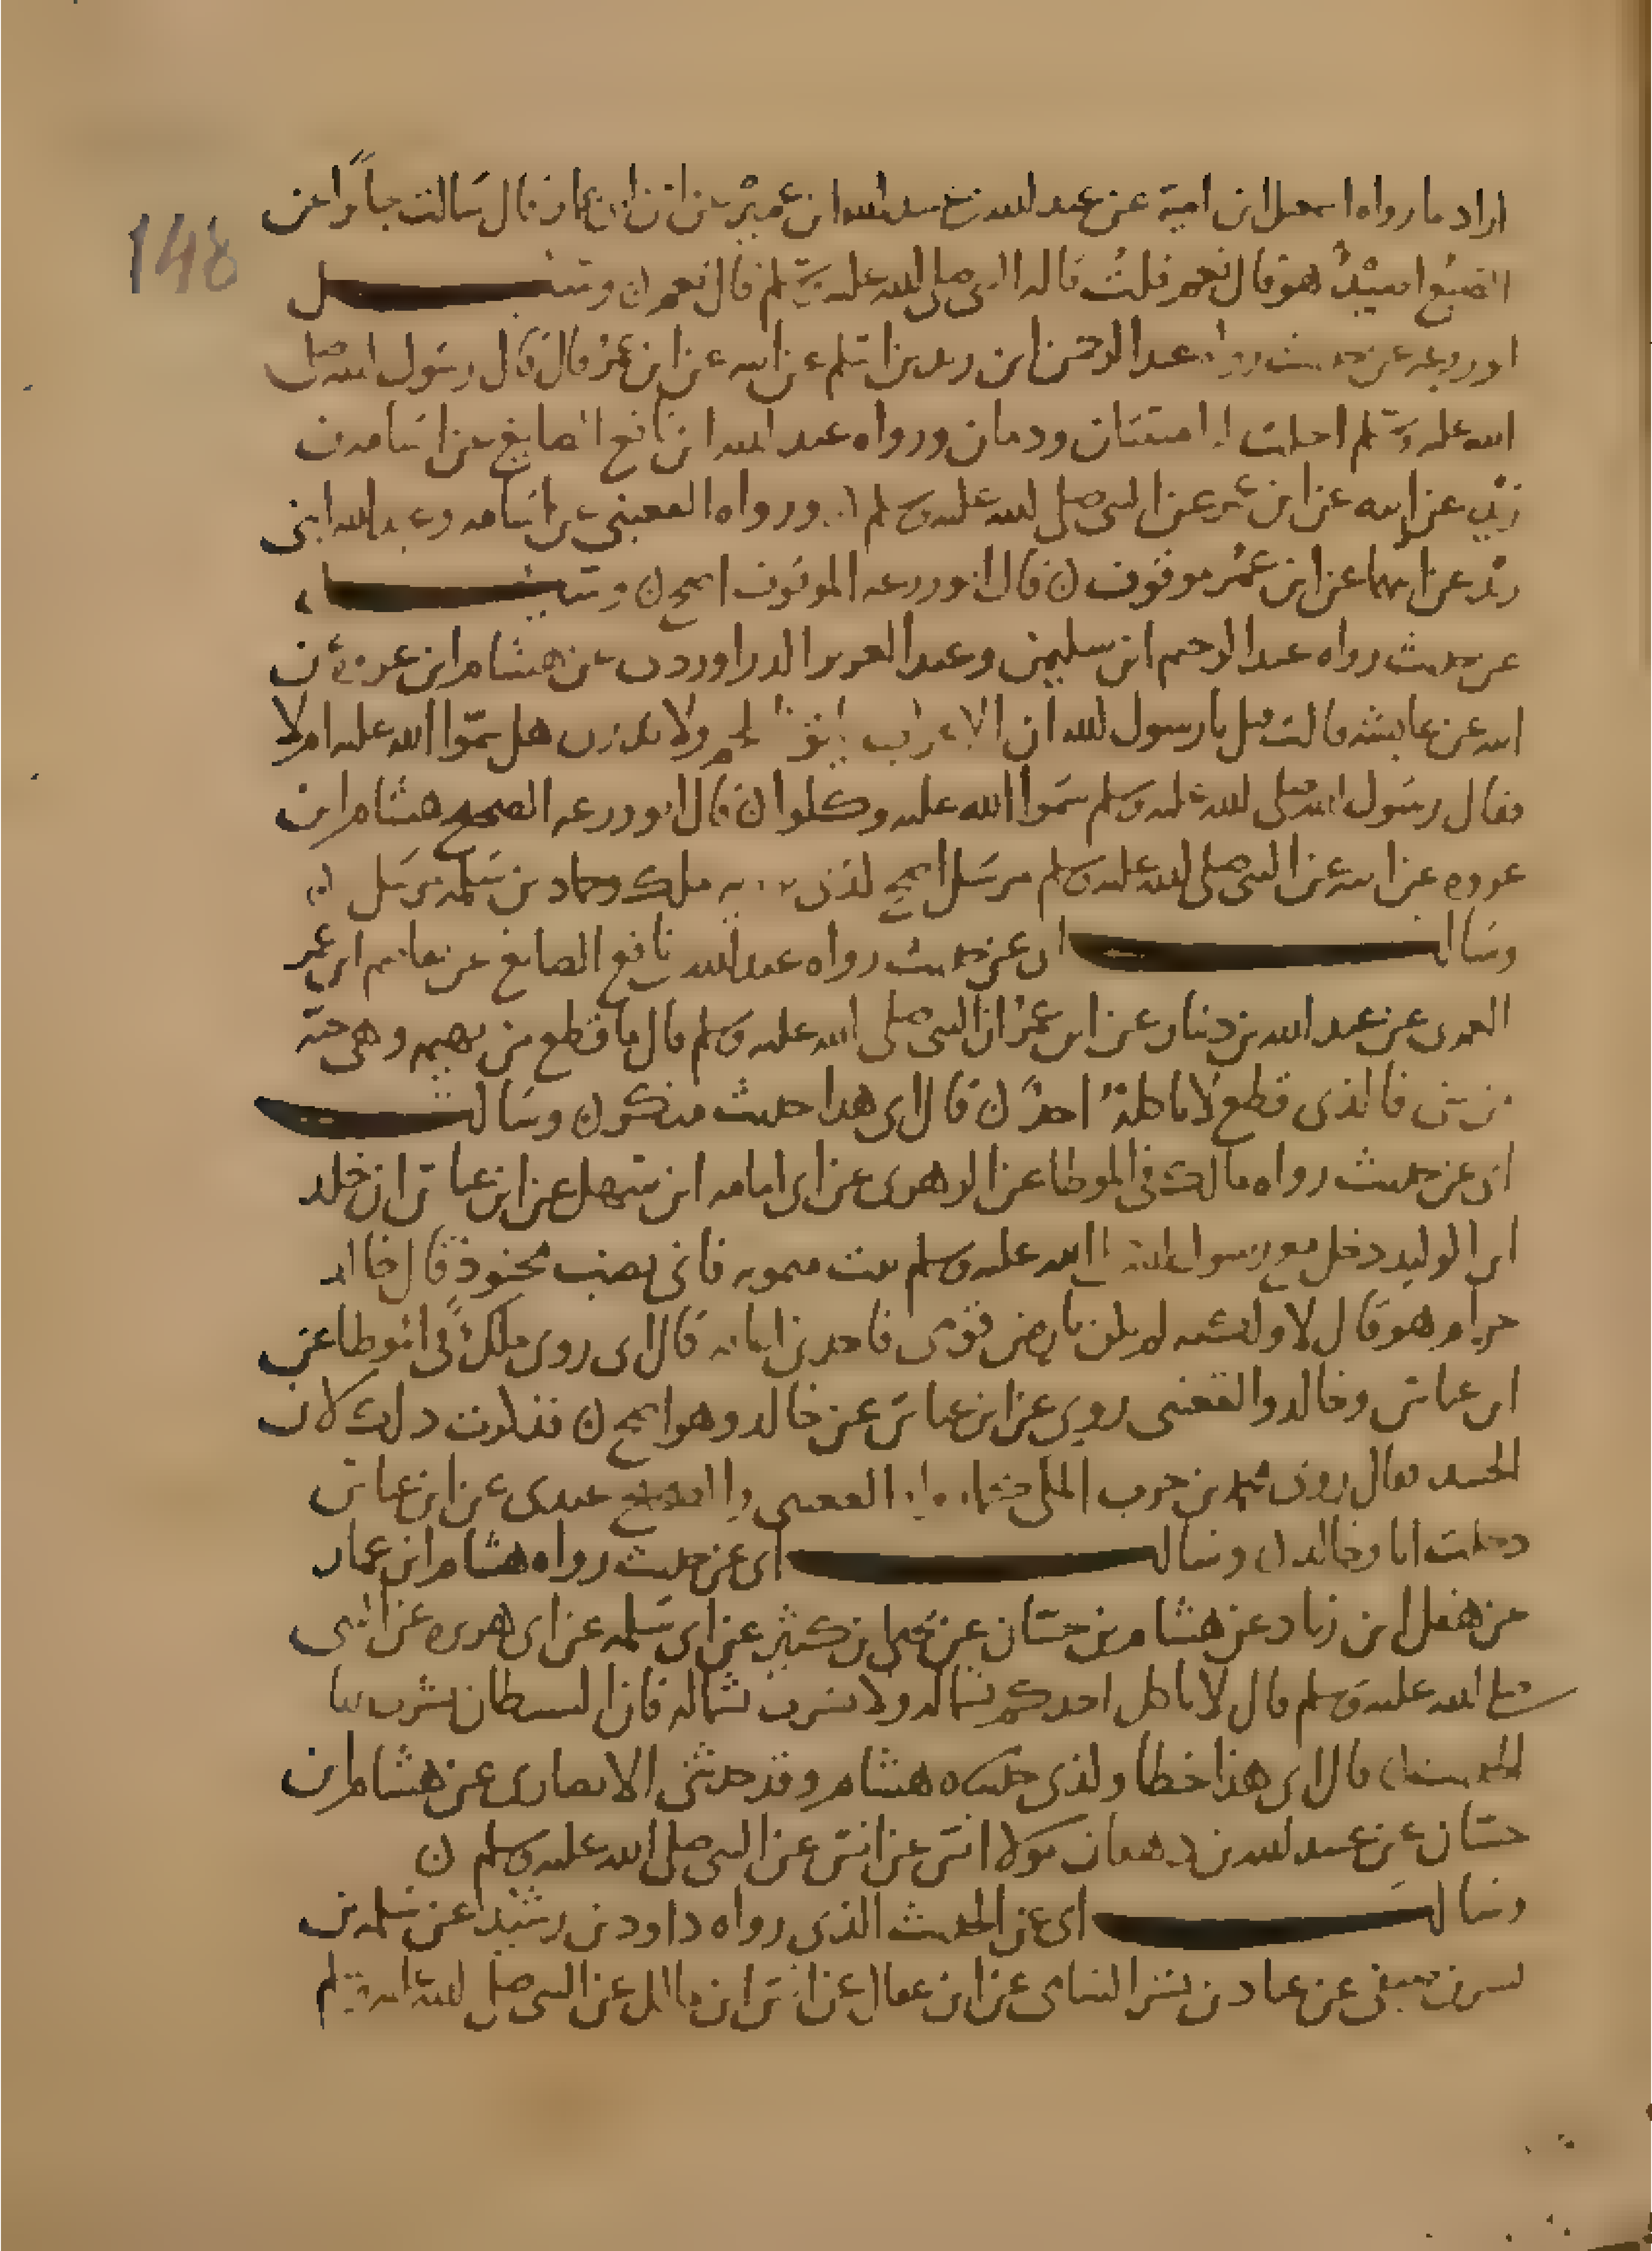 148
اراد ما رواه اسمعيل ابن امية عن عبد الله بن عبيد الله ابن عمير عن ابن ابي عمار قال سالت جابرا عن
الضبع اصيد هو قال نعم قلت قاله النبي صلى الله عليه وسلم قال نعم ن وسئل
ابو زرعه عن حديث رواه عبد الرحمن ابن زيد بن اسلم عن ابيه عن ابن عمر قال قال رسول الله صلى
الله عليه وسلم احلت لنا ميتتان ودمان ورواه عبد الله ابن نافع الصايغ عن اسامه بن
زيد عن ابيه عن ابن عمر عن النبي صلى الله عليه وسلم ن ورواه القعنبي عن اسامه وعبد الله ابني
زيد عن ابيهما عن ابن عمر موقوف ن قال ابو زرعه الموقوف اصح ن وسئل
عن حديث رواه عبد الرحيم ابن سليمن وعبد العزيز الدراوردي عن هشام ابن عروة عن
ابيه عن عايشه قالت قيل يا رسول الله ان الاعراب ياتونا بلحم ولا ندري هل سموا الله عليه ام لا
فقال رسول الله صلى الله عليه وسلم سموا الله عليه وكلوا ن قال ابو زرعه الصحيح هشام ابن
عروه عن ابيه عن النبي صلى الله عليه وسلم مرسل اصح كذى يرويه ملك وحماد بن سلمه مرسل ن
وسالت ابي عن حديث رواه عبد الله نافع الصايغ عن عاصم ابن عمر
العمري عن عبد الله بن دينار عن ابن عمر ان النبي صلى الله عليه وسلم قال ما قطع من بهيمه وهي حية
فالذي قطع لا ياكله احد ن قال ابي هذا حديث منكر ن وسالت
ابي عن حديث رواه مالك في الموطا عن الزهري عن ابي امامه ابن سهل عن ابن عباس ان خلد
ابن الوليد دخل مع رسول الله صلى الله عليه وسلم بيت ميمونه فاتي بضب محنوذ قال خالد
حرام هو قال لا ولكنه لم يكن بارض قومي فاجدني اعافه قال ابي روى ملك في الموطا عن
ابن عباس وخالد والقعنبي روى عن ابن عباس عن خالد وهو اصح ن فذكرت ذلك لابن
الجنيد فقال روى محمد بن حرب المكي القعنبي والصحيح عندي عن ابن عباس
دخلت انا وخالد ن وسالت ابي عن حديث رواه هشام ابن عمار
عن هقل ابن زياد عن هشام بن حسان عن يحيى ابن كثير عن ابي سلمه عن ابي هريره عن النبي
صلى الله عليه وسلم قال لا ياكل احدكم بشماله ولا يشرب بشماله فان الشيطان يشرب
الحديث ن قال ابي هذا خطا ولذى حديث هشام وقد حدثني الانصاري عن هشام ابن
حسان عن عبيد الله بن دهقان مولا انس عن انس عن النبي صلى الله عليه وسلم ن
وسالت ابي عن الحديث الذي رواه داود بن رشيد عن سلمه بن
بشر بن صيفي عن عباد بن بشر الشامي عن ابن عقال عن انس ابن مالك عن النبي صلى الله عليه وسلم